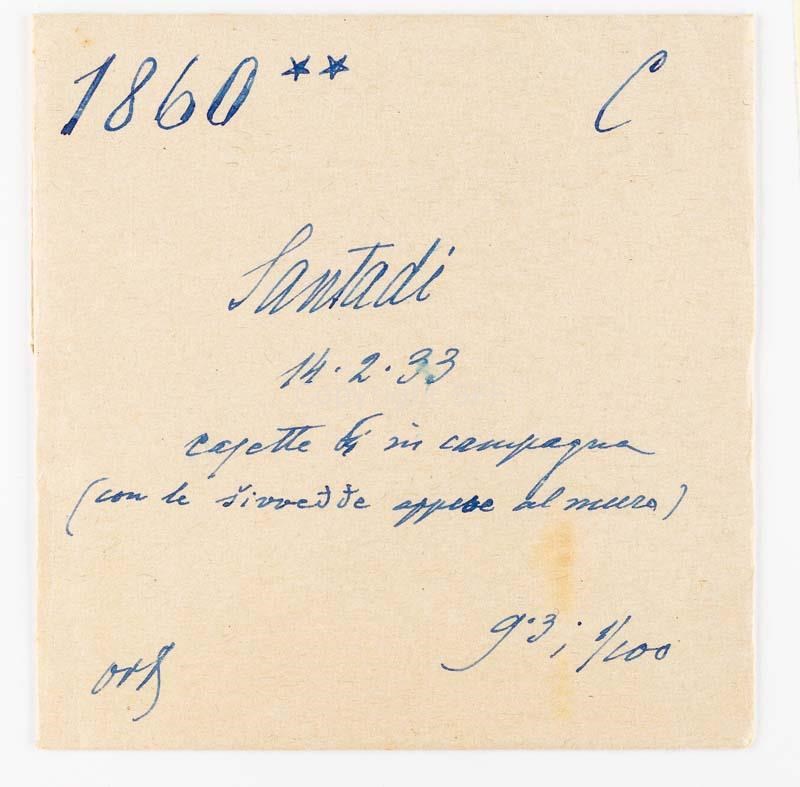 1860 ** C
Santadi
14.2.33
casette in campagna
(con le šivveđđe appese al muro)
9.3; 1/100